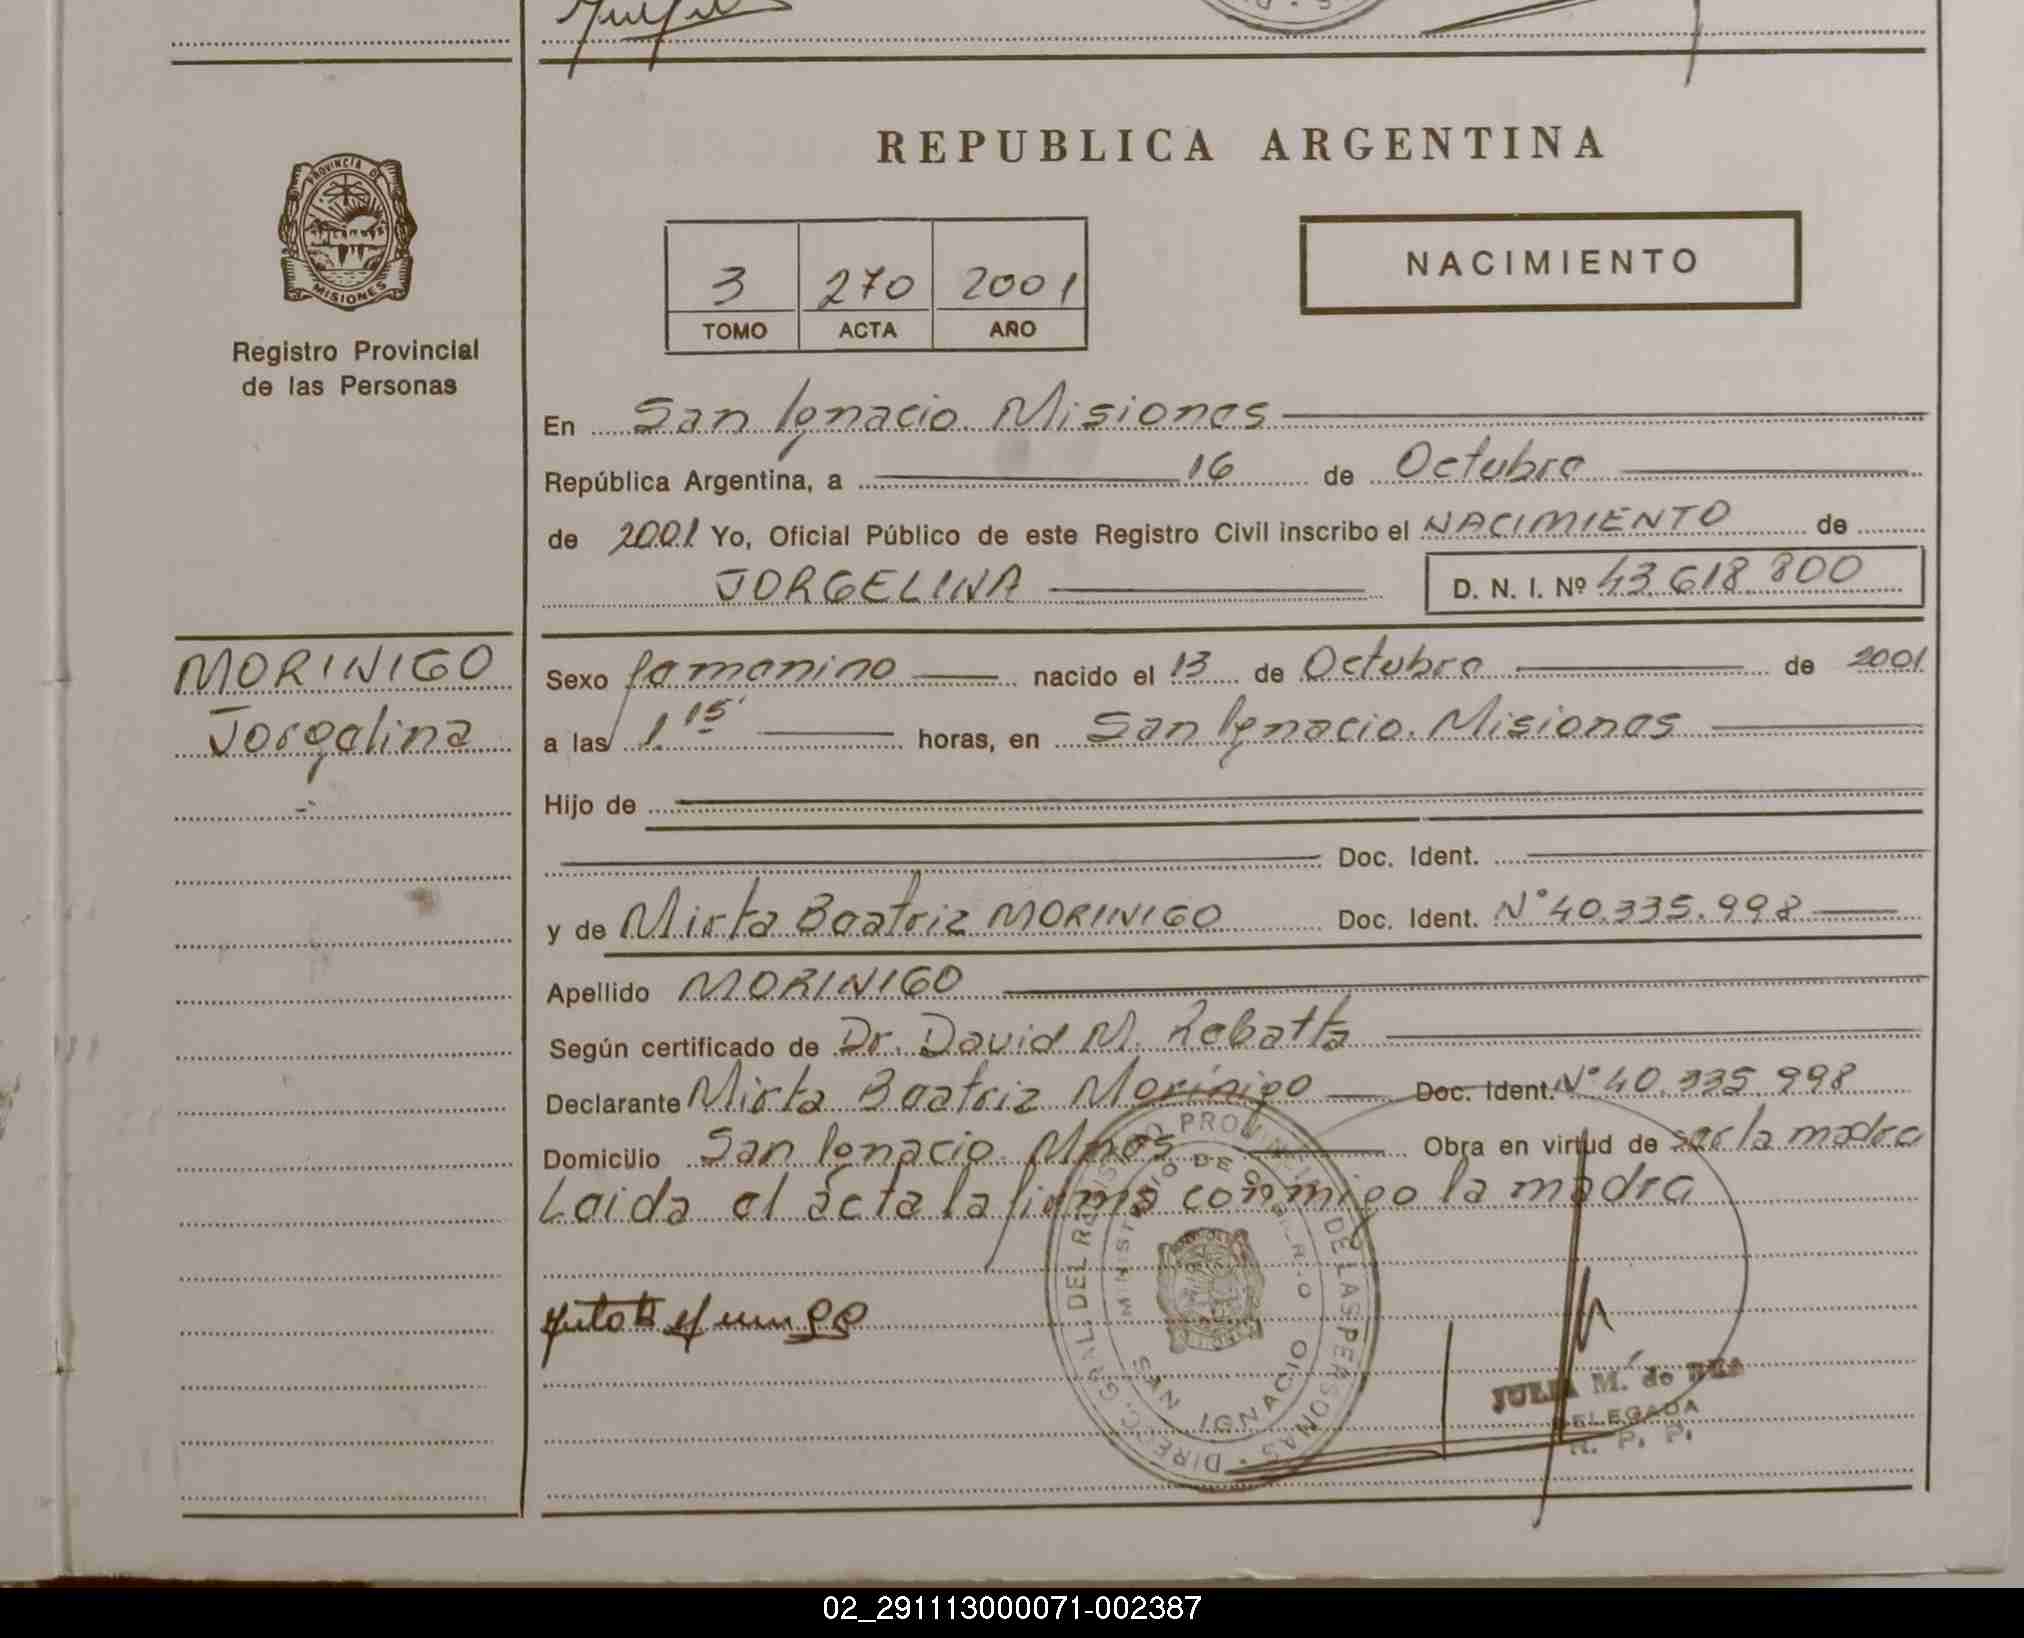 REPUBLICA ARGENTINA
PROVINCIA DE
MISIONES
Registro Provincial
de las Personas
3 270 2001
TOMO ACTA AÑO
NACIMIENTO
En San Ignacio. Misiones
República Argentina, a 16 de Octubre
de 2001 Yo, Oficial Público de este Registro Civil inscribo el NACIMIENTO de
JORGELINA D. N. I. Nº 43.618.800
MORINIGO
Jorgelina
Sexo femenino nacido el 13 de Octubre de 2001
a las 1.15' horas, en San Ignacio. Misiones
Hijo de
Doc. Ident.
y de Mirta Beatriz MORINIGO Doc. Ident. Nº 40.335.998
Apellido MORINIGO
Según certificado de Dr. David M. Rebatta
Declarante Mirta Beatriz Morínigo Doc. Ident. Nº 40.335.998
Domicilio San Ignacio. Mnes Obra en virtud de ser la madre
Leida el ácta la firma conmigo la madre
DIREC. GRAL. DEL REGISTRO PROVINCIAL DE LAS PERSONAS
MINISTERIO DE GOBIERNO
SAN IGNACIO
JULIA M. de REA
DELEGADA
R. P. P.
02_291113000071-002387